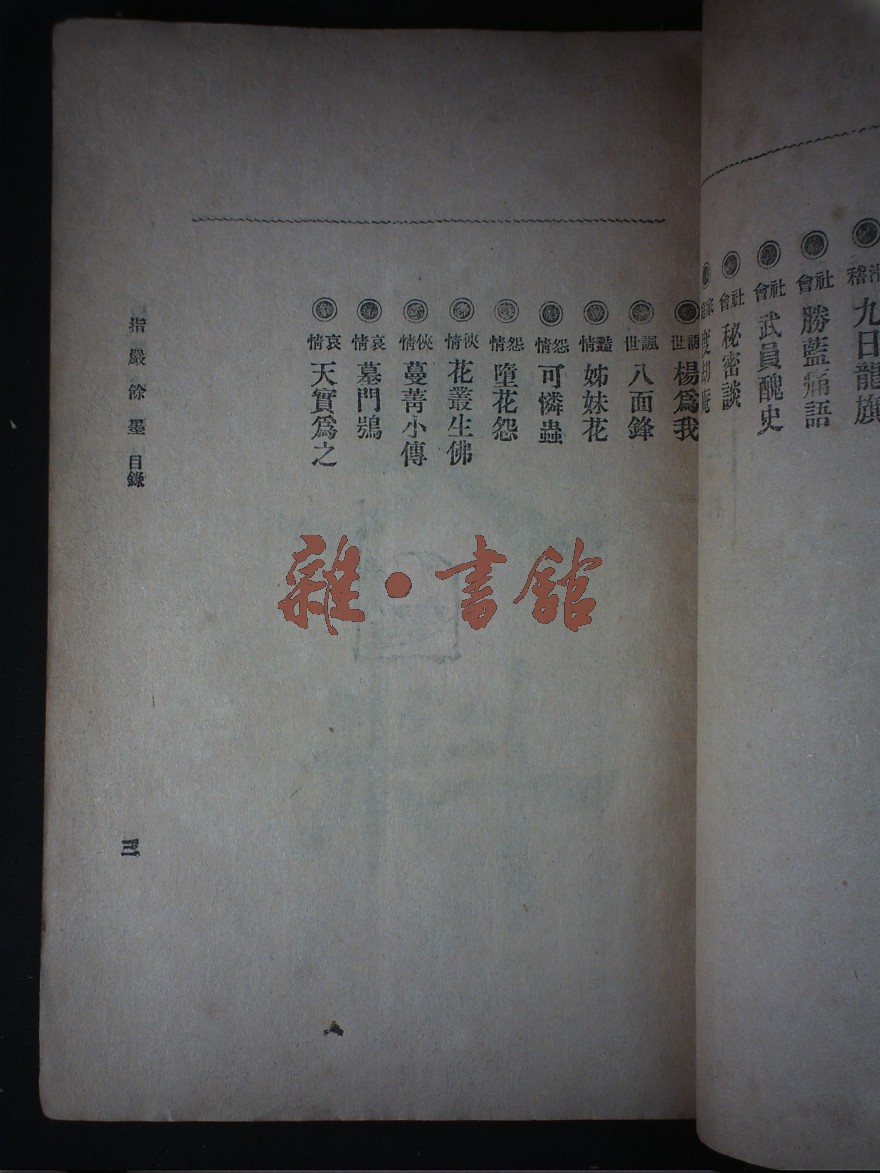 九日龍旗
社會 勝藍痛語
社會 武員醜史
社會 秘密談
諷世 楊爲我
諷世 八面鋒
豔情 姊妹花
怨情 可憐蟲
怨情 墮花怨
俠情 花叢生佛
俠情 蔓菁小傳
哀情 墓門鴞
哀情 天實爲之
指嚴餘墨 目錄
三
雜·書館